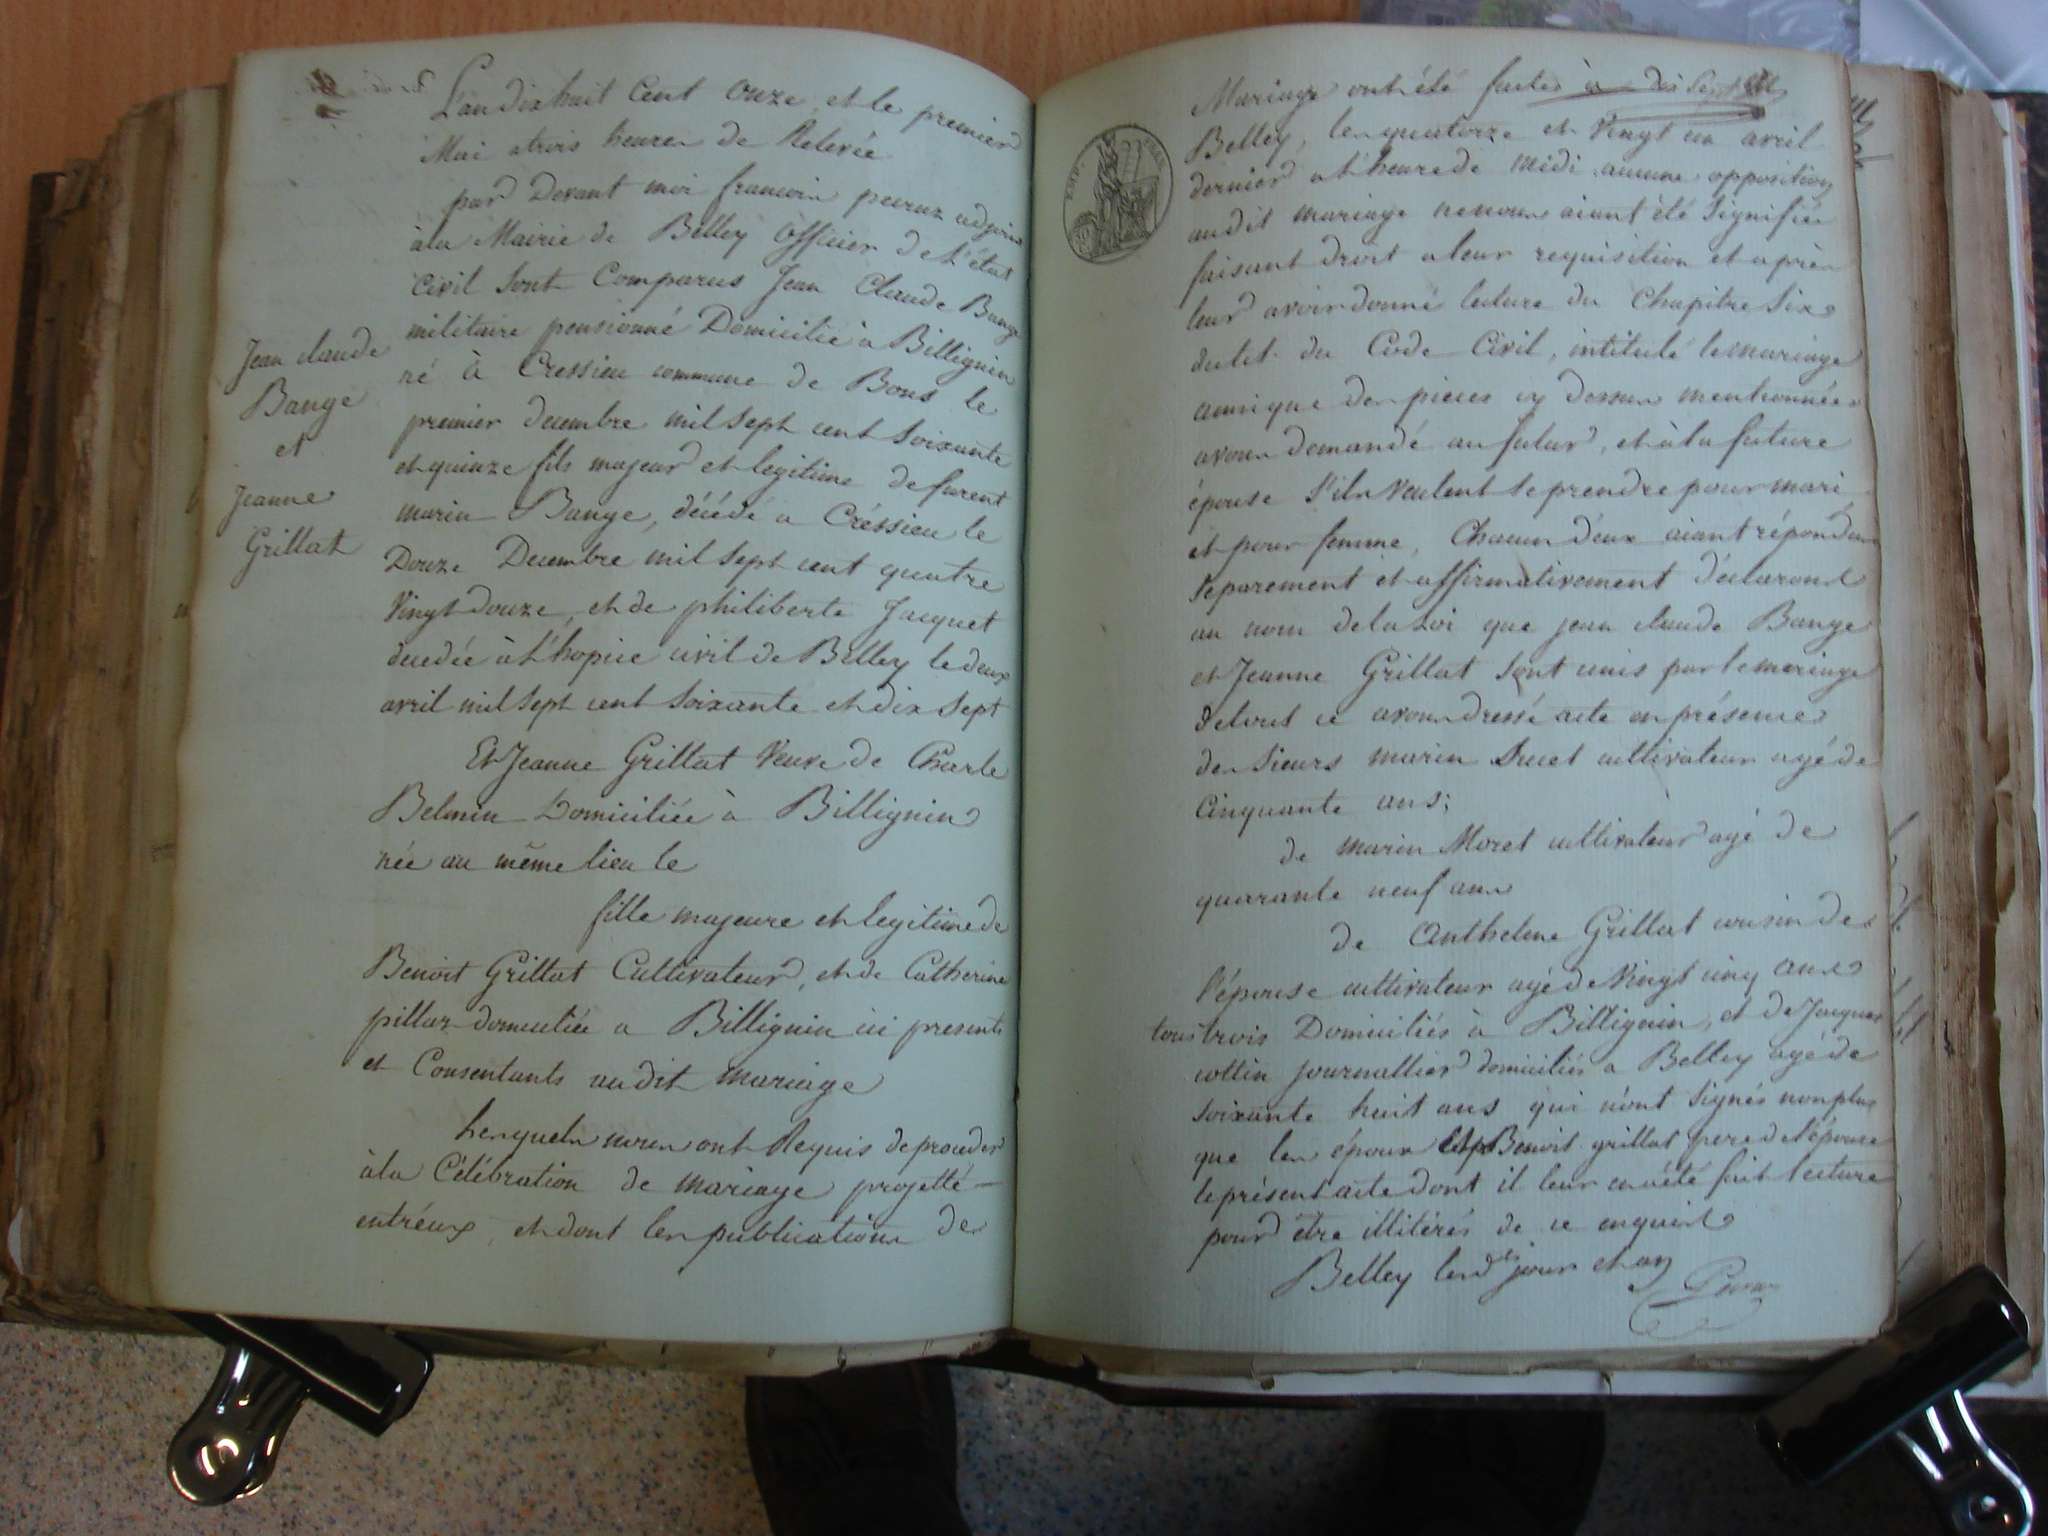 L'an dix huit Cent onze et le premier
Mai a trois heures de Relevée
par Devant moi francois peiruz adjoint
à la Mairie de Belley officier de l'état
Civil Sont Comparus Jean Claude Bange
militaire pensionné Domicilié a Billignin
né à Cressieu commune de Bons le
premier decembre mil sept cent soixante
et quinze fils majeur et legitime de furent
marin Bange, décédé a Créssieu le
Douze Decembre mil sept cent quatre
Vingt douze, et de philiberte Jacquet
decedée à l'hopice civil de Belley le deux
avril mil sept cent soixante et dix sept
Et Jeanne Grillat Veuve de Charle
Belmin Domiciliée à Billignin
née au même lieu le
fille majeure et legitime de
Benoit Grillat Cultivateur, et de Catherine
pillaz domiciliée a Billignin ici presents
et Consentants au dit mariage
Lesquels nous ont Requis de proceder
à la Célébration de mariage projetté
entréux, et dont les publications de
Jean claude
Bange
et
Jeanne
Grillat
Mariage ont été faites à
EMP. FRAN.
Belley, les quatorze et Vingt un avril
dernier a l'heure de midi aucune opposition
au dit mariage ne nous aiant été Signifiée
faisant droit a leur requisition et après
leur avoir donné lecture du Chapitre Six
du tit. du Code Civil, intitulé le mariage
ainsi que des pieces cy dessus mentionnées
avons demandé au futur, et à la future
épouse S'ils veulent se prendre pour mari
et pour femme, Chacun d'eux aiant répondu
séparement et affirmativement déclarons
au nom de la Loi que jean claude Bange
et Jeanne Grillat Sont unis par le mariage
de tout ce avons dressé acte en présence
des Sieurs marin Ducet cultivateur agé de
Cinquante ans;
de marin Moret cultivateur agé de
quarante neuf ans
de Anthelme Grillat cousin de
l'épouse cultivateur agé de Vingt cinq ans
tous trois Domiciliés à Billignin, et de Jacques
cottin journallier domicilié a Belley agé de
soixante huit ans qui n'ont Signés non plus
que les époux Benoit grillat pere de l'épouse
le présent acte dont il leur a été fait lecture
pour être illitérés de ce enquis
Belley les d jour et an
Peiruz